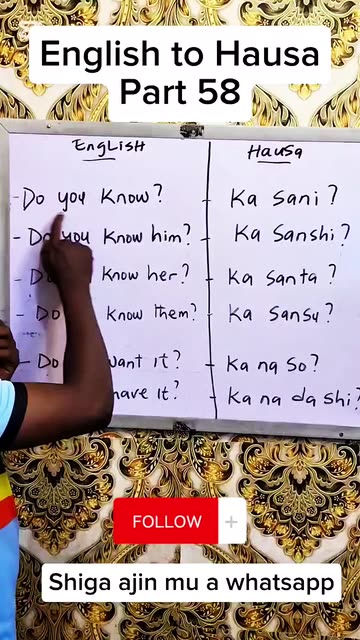 English to Hausa
Part 58
English Hausa
- Do you Know? - Ka Sani?
- Do you Know him? - Ka Sanshi?
- Do Know her? - Ka Santa?
- Do Know them? - Ka Sansu?
- Do want it? - Ka na So?
have it? - Ka na da shi?
FOLLOW +
Shiga ajin mu a whatsapp